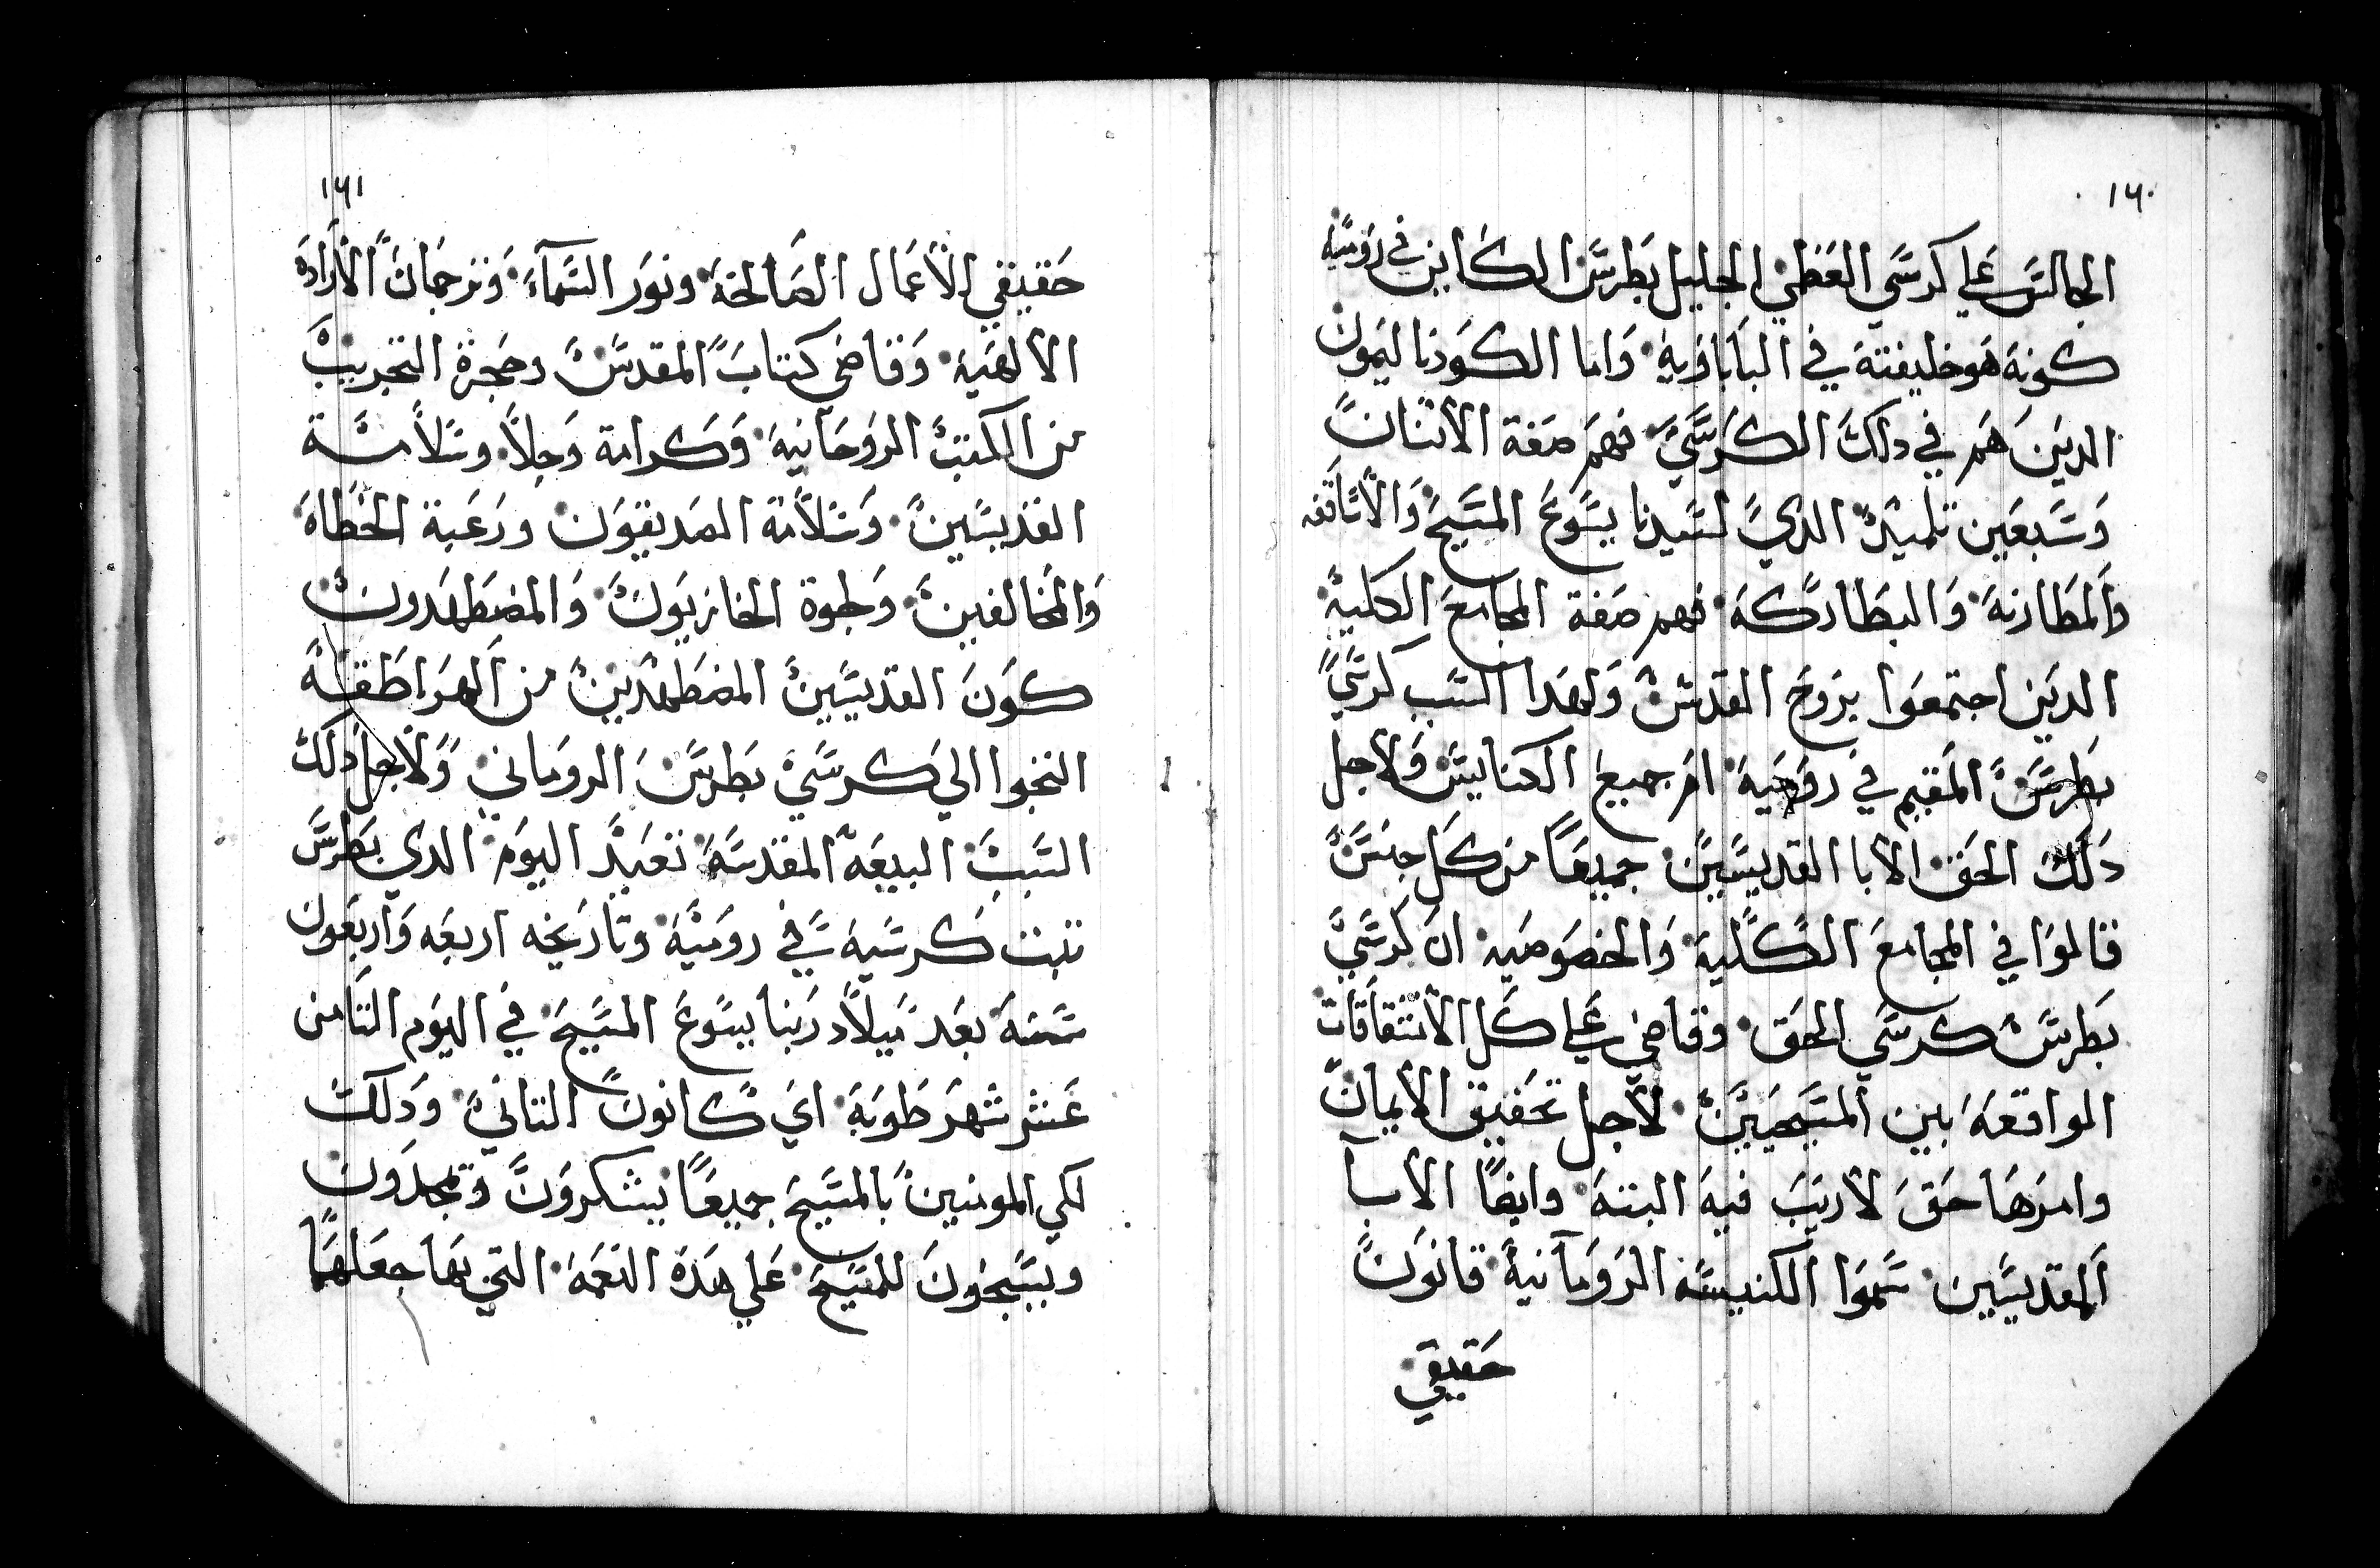 ١٦٠
الجالس علي كرسي العظيم الجليل بطرس الكاين في رومية
كونه هو خليفته في الباباوية واما الكردناليون
الدين هم في دلك الكرسي فهم صفة الاتنان
وسبعين تلميد الدي لسيدنا يسوع المسيح والاساقفه
والمطارنة والبطاركة فهم صفة المجامع الكلية
الدين اجتمعوا بروح القدس ولهدا السبب كرسي
بطرس المقيم في رومية ام جميع الكنايس ولاجل
دلك الحق الابا القديسين جميعا من كل جنس
قالوا في المجامع الكلية والخصوصيه ان كرسي
بطرس كرسي الحق وقاضي علي كل الاتفاقات
الواقعة بين المسيحين لاجل تحقيق الايمان
وامرها حق لاريب فيه البتة وايضا الابآ
القديسين سموا الكنيسة الرومانية قانون
حقيقي
١٦١
حقيقي الاعمال الصالحة ونور السمآء وترجمان الارادة
الالهية وقاضي كتاب المقدس وحجرة التجريب
من الكتب الروحانية وكرامة وجلا وسلامة
القديسين وسلامة الصديقون ورعبة الخطاه
والمخالفين وطبوة الحازيون والمضطهدون
كون القديسين المضطهدين من الهراطقة
التجوا الي كرسي بطرس الروماني ولاجل دلك
السبب البيعة المقدسة تعيد اليوم الدي بطرس
تبت كرسيه في رومية وتاريخه اربعه واربعون
سنة بعد ميلاد ربنا يسوع المسيح في اليوم التامن
عشر شهر طوبة اي كانون التاني ودلك
لكي المومنين بالمسيح جميعا يشكرون ويمجدون
ويسبحون للمسيح علي هده النعمة التي بها جعلها